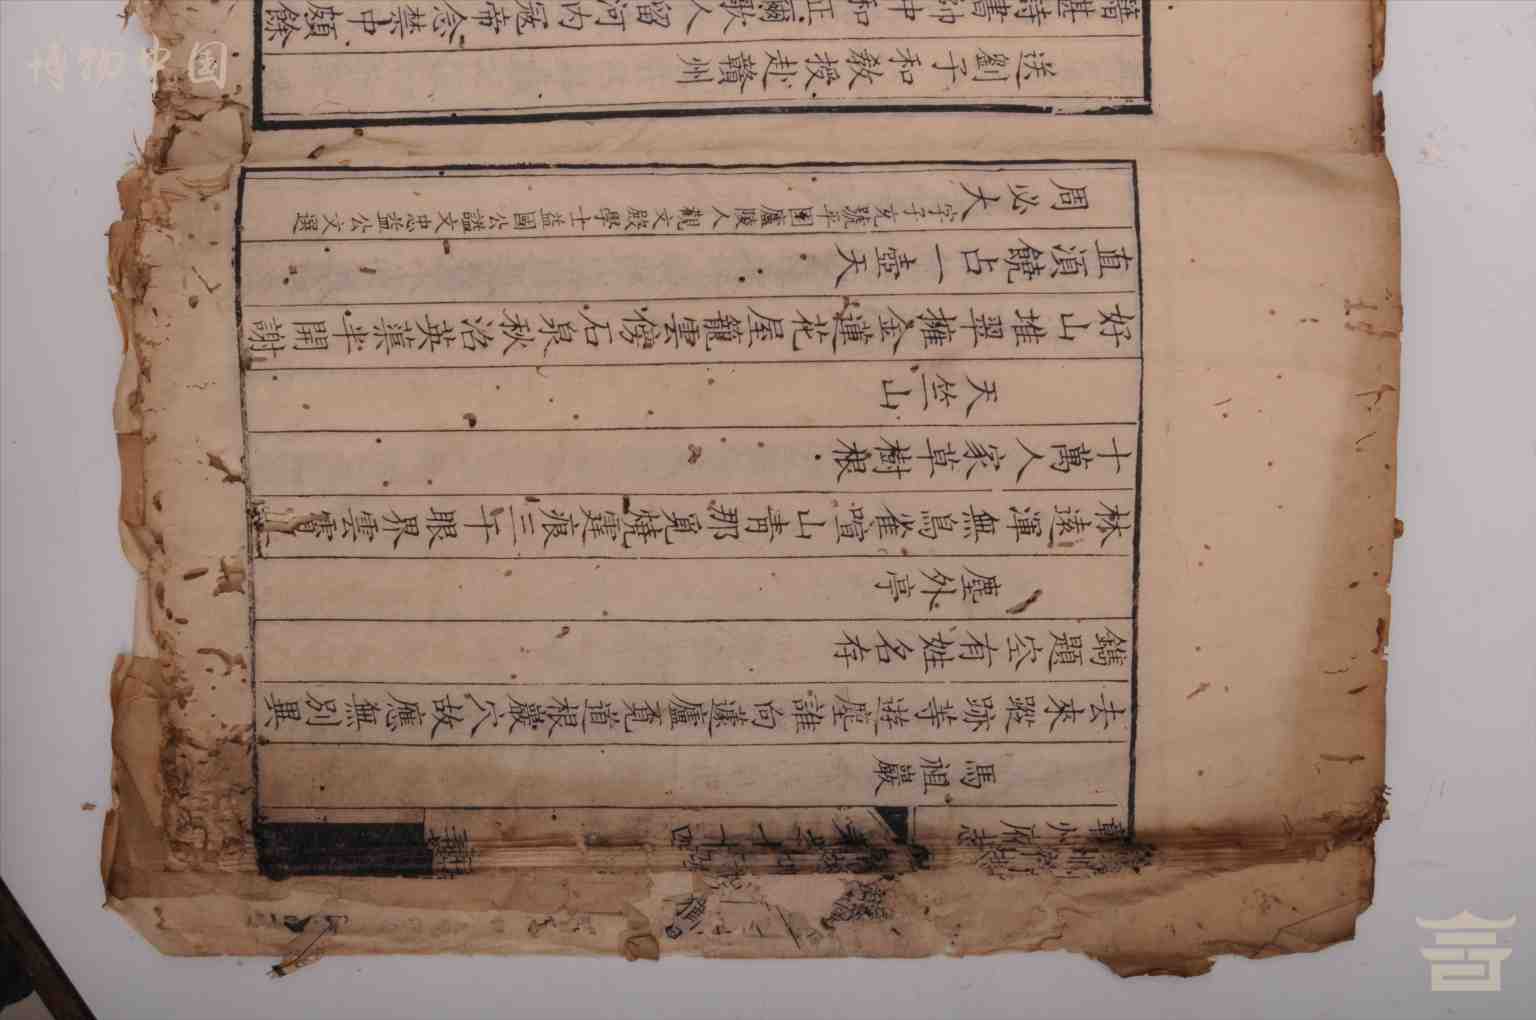 州府志 七十四
馬祖巖
去來蹤跡等遊塵誰向蘧廬覔道根巖穴故應無別異
鐫題空有姓名存
塵外亭
林遠渾無鳥雀喧山青那覓燒霆痕三千眼界雲霄
十萬人家草樹根
天竺山
好山堆翠擁金蓮花屋籠雲傍石泉秋沼英蕖半開謝
直須饒占一壺天
周必大字子充號平園廬陵人觀文殿學士益國公諡文忠益公文選
送劉子和教授赴贛州
籍甚詩書帥中和正爾歌人留河内冦帝念禁中頗餘
博物中国